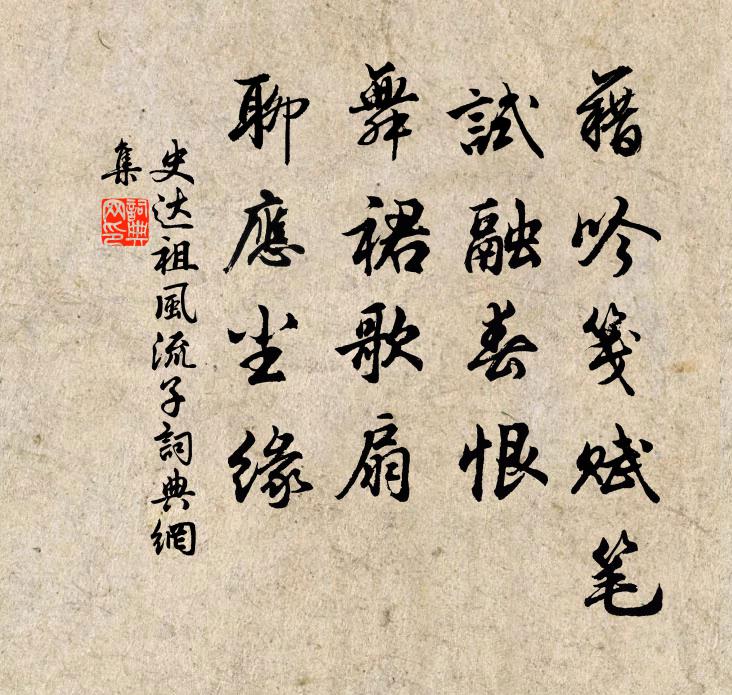 藉吟箋賦笔
試融春恨
舞裙歌扇
聊應尘緣
史达祖風流子詞典網
集
詞典
网印